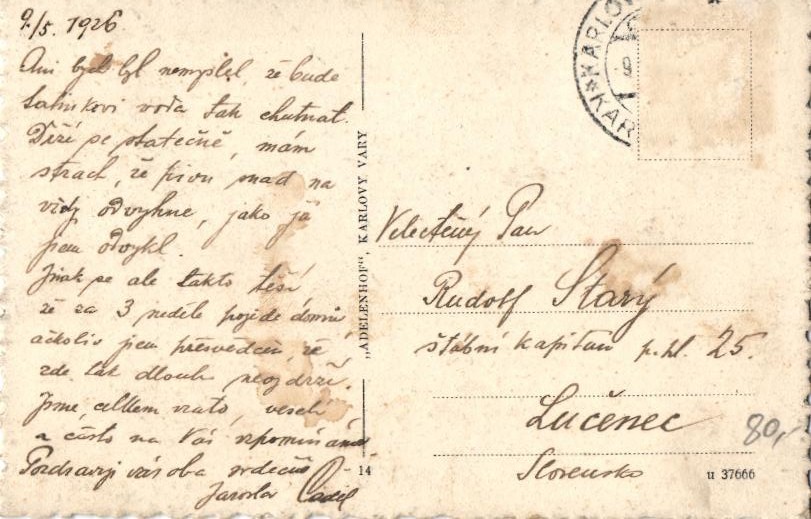 9./5. 1926
Ani bych byl nemyslel, že bude
voda tak chutnat.
Drží se statečně, mám
strach, že pivu snad na
vždy odvykne, jako já
jsem odvykl.
Jinak se ale takto těší
že za 3 neděle pojede domů
ačkoliv jsem přesvědčen, že
zde tak dlouho neodrží.
Jsme celkem veselí
a často na Vás vzpomínáme
Pozdravují vás oba srdečně
Jaroslav
"ADELENHOF", KARLOVY VARY
14
KARLOVY
9
KAR
Velectěný Pan
Rudolf Starý
štábní kapitan p. pl. 25.
Lučenec
Slovensko
80,-
u 37666